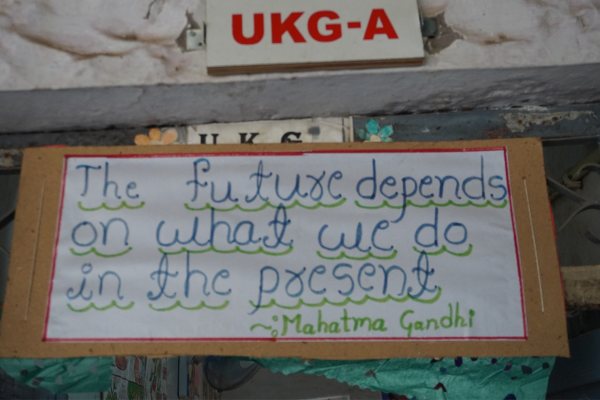 UKG-A
U K G
The future depends
on what we do
in the present
~:Mahatma Gandhi